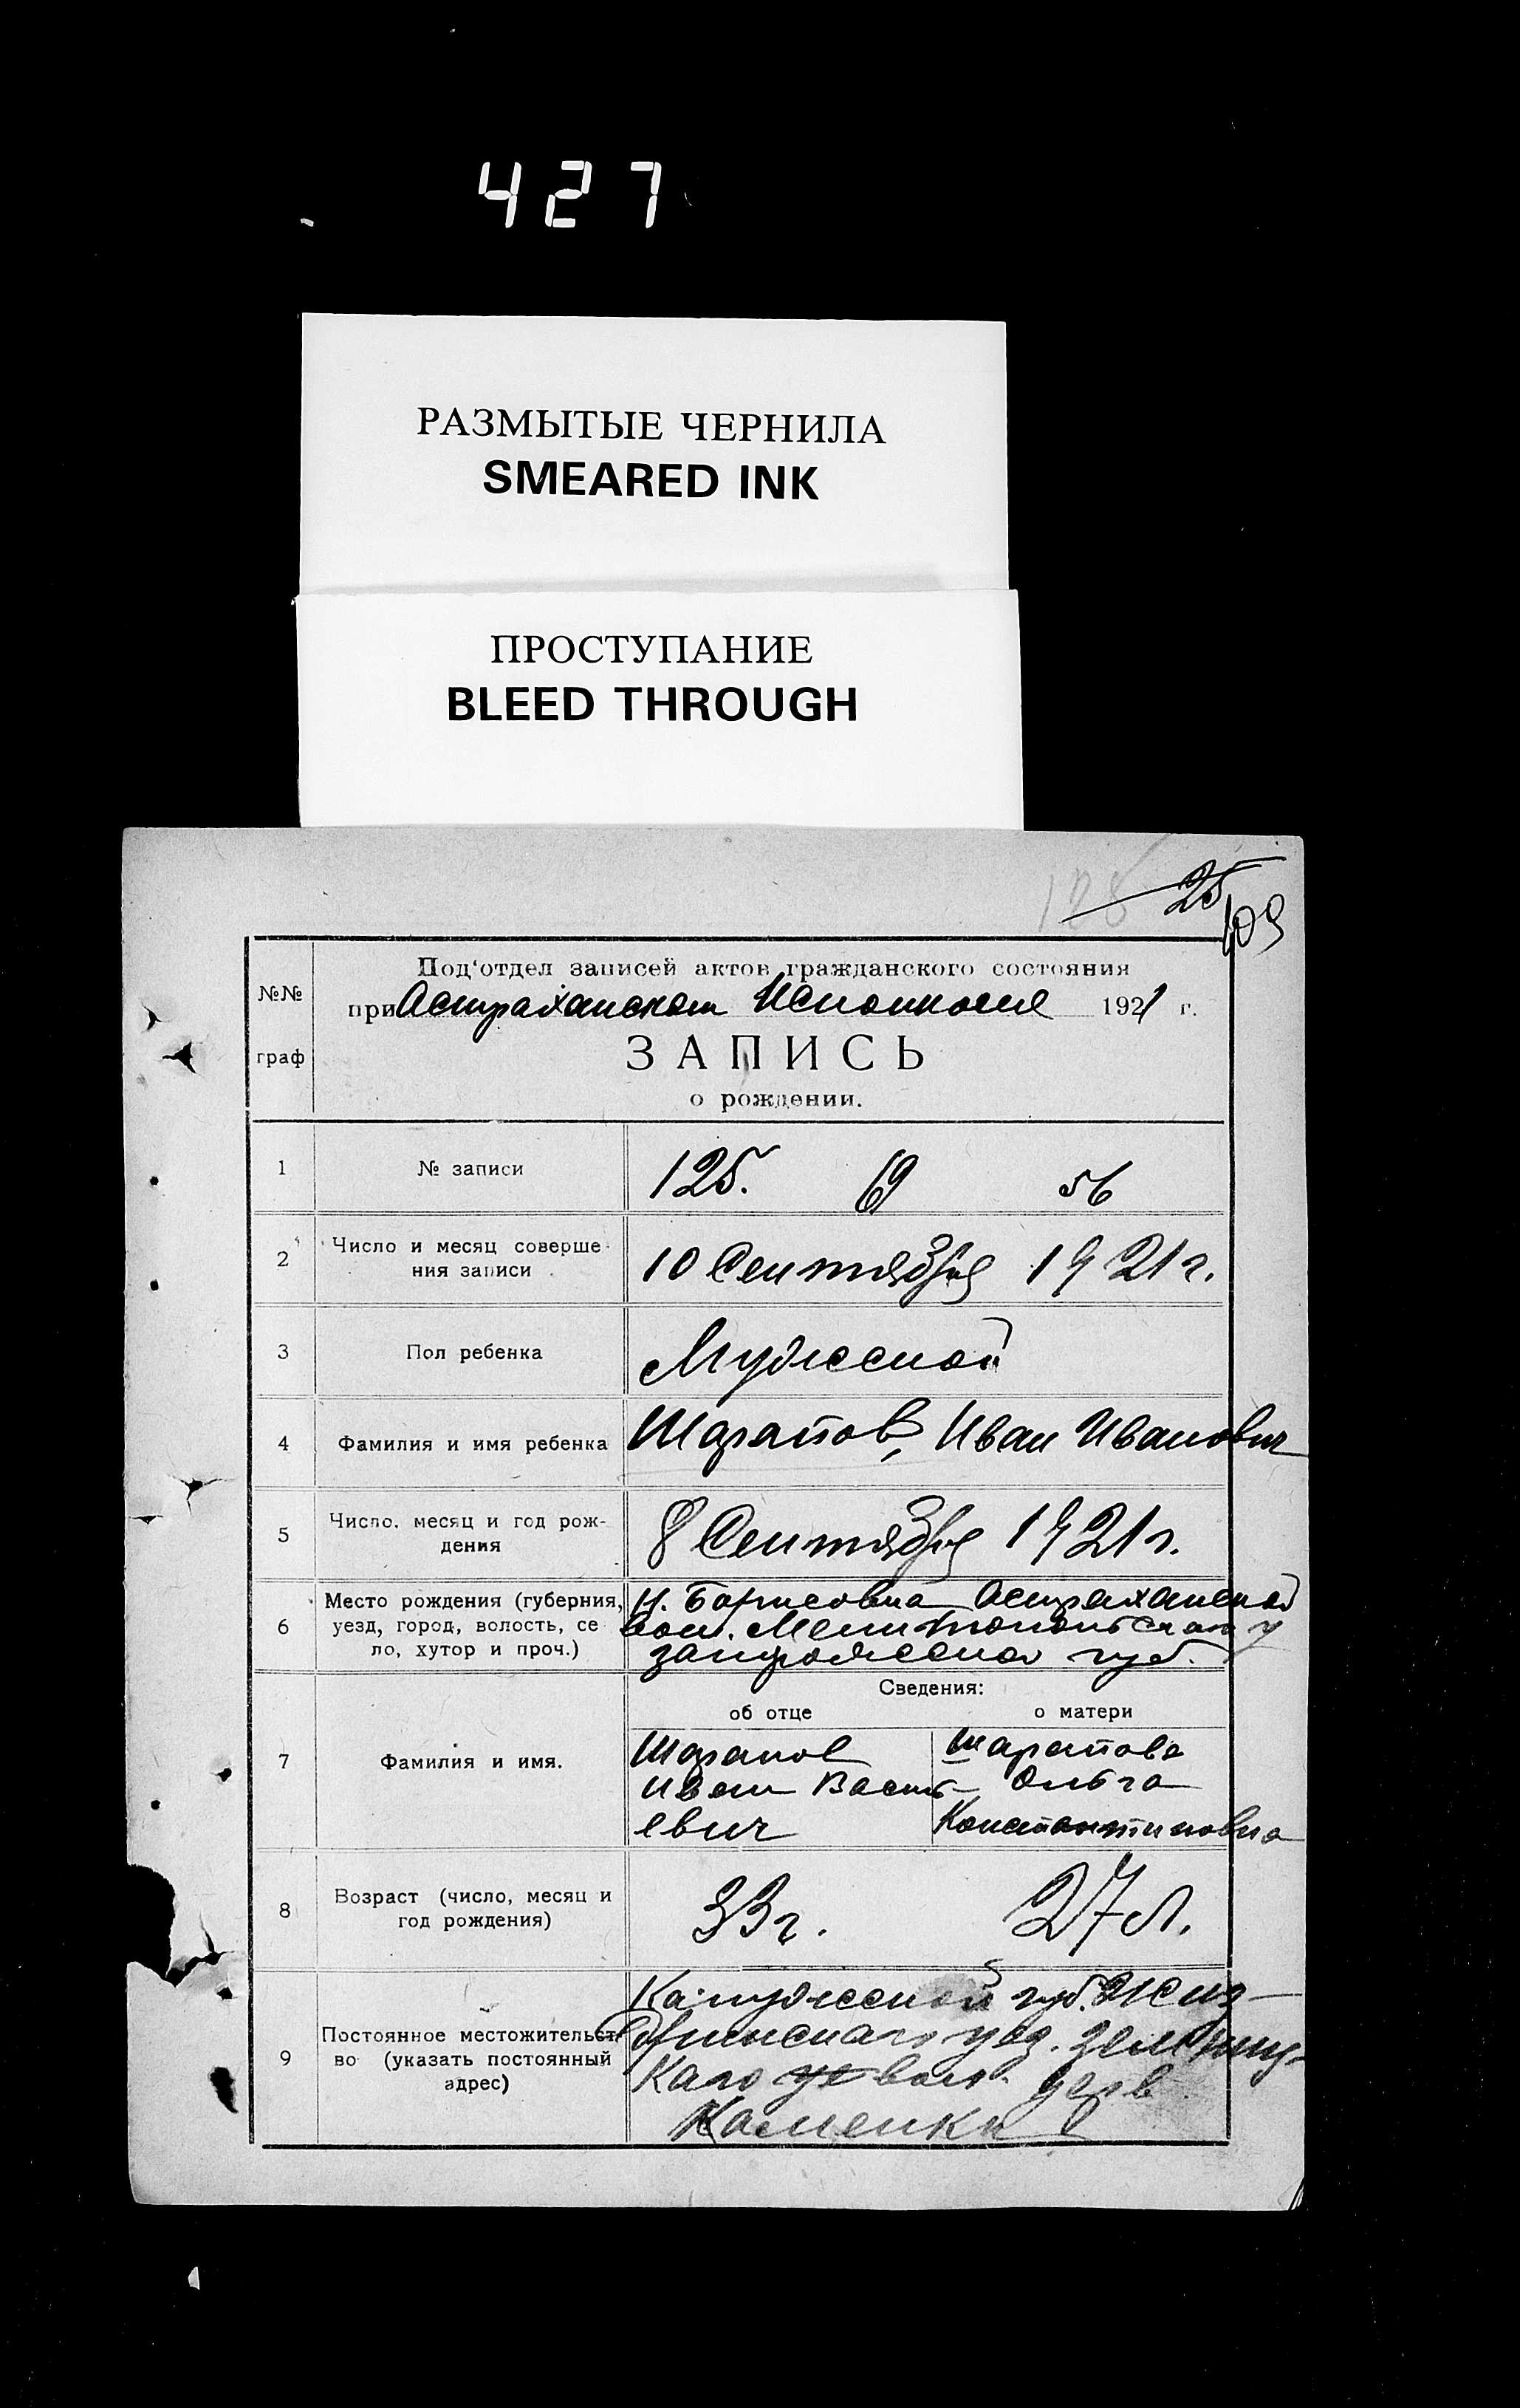 427
РАЗМЫТЫЕ ЧЕРНИЛА
SMEARED INK
ПРОСТУПАНИЕ
BLEED THROUGH
125 25
109
№№
граф
Под'отдел записей актов гражданского состояния
при Астраханском Исполкоме 1921 г.
ЗАПИСЬ
о рождении.
1 № записи 125. 69 56
2 Число и месяц соверше-
ния записи 10 Сентября 1921 г.
3 Пол ребенка Мужской
4 Фамилия и имя ребенка Шарапов, Иван Иванович
5 Число, месяц и год рож-
дения 8 Сентября 1921 г.
6 Место рождения (губерния, Н. Борисовка Астраханской
уезд, город, волость, се вол. Мелитопольскаго у
ло, хутор и проч.) запорожской губ.
Сведения:
об отце о матери
7 Фамилия и имя.
Шарапов Шарапова
Иван Василь- Ольга
евич Константиновна
8 Возраст (число, месяц и
год рождения) 33 г. 27 л.
9 Постоянное местожительст-
во (указать постоянный
адрес)
Калужской губ. Жиз-
дринскаго уез.
каго вол. дерв
Каменки